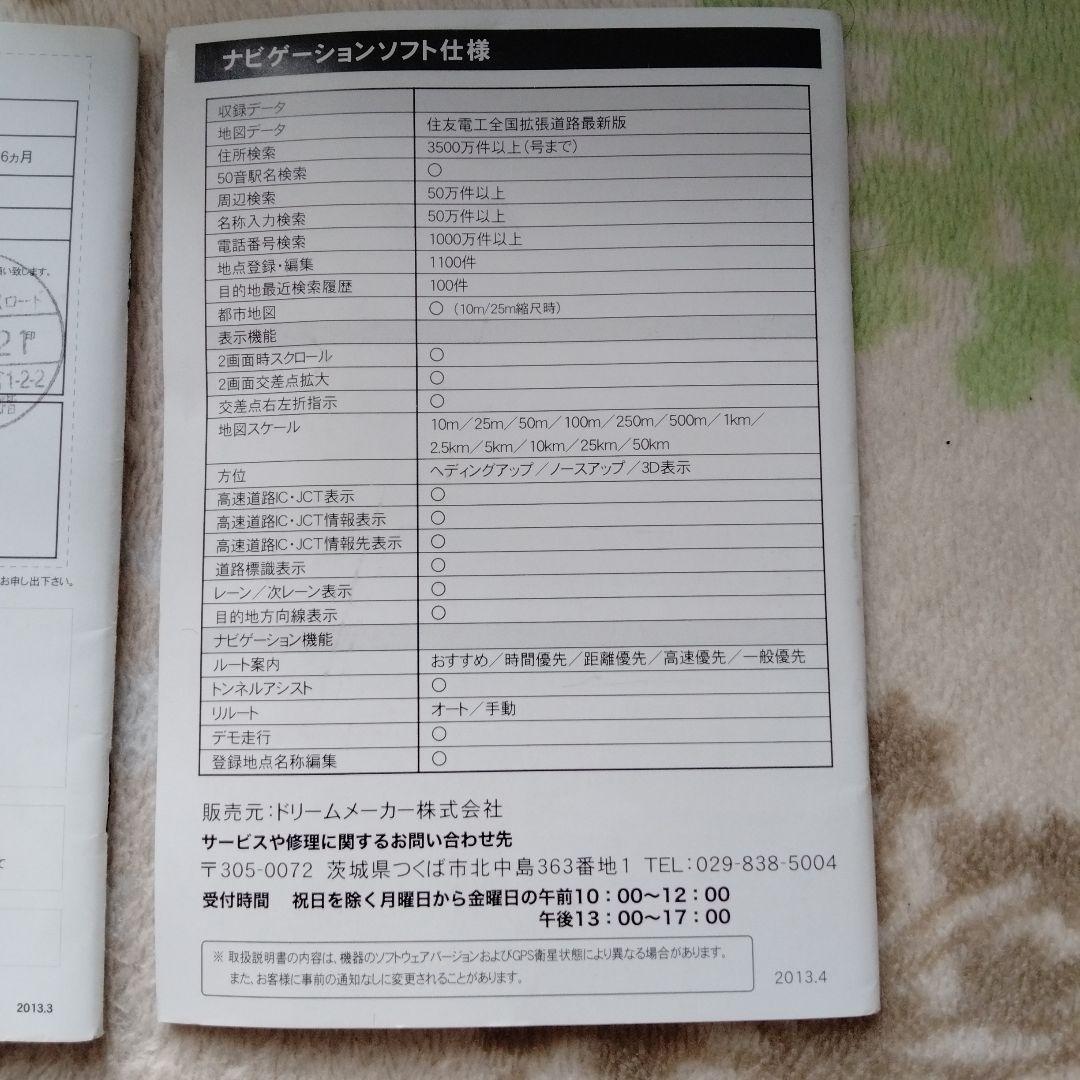 6ヵ月
い致します。
1-2-2
お申し出下さい。
2013.3
ナビゲーションソフト仕様
収録データ
地図データ 住友電工全国拡張道路最新版
住所検索 3500万件以上(号まで)
50音駅名検索 ○
周辺検索 50万件以上
名称入力検索 50万件以上
電話番号検索 1000万件以上
地点登録・編集 1100件
目的地最近検索履歴 100件
都市地図 ○ (10m/25m縮尺時)
表示機能
2画面時スクロール ○
2画面交差点拡大 ○
交差点右左折指示 ○
地図スケール 10m/25m/50m/100m/250m/500m/1km/
2.5km/5km/10km/25km/50km
方位 ヘディングアップ/ノースアップ/3D表示
高速道路IC・JCT表示 ○
高速道路IC・JCT情報表示 ○
高速道路IC・JCT情報先表示 ○
道路標識表示 ○
レーン/次レーン表示 ○
目的地方向線表示 ○
ナビゲーション機能
ルート案内 おすすめ/時間優先/距離優先/高速優先/一般優先
トンネルアシスト ○
リルート オート/手動
デモ走行 ○
登録地点名称編集 ○
販売元:ドリームメーカー株式会社
サービスや修理に関するお問い合わせ先
〒305-0072 茨城県つくば市北中島363番地1 TEL:029-838-5004
受付時間 祝日を除く月曜日から金曜日の午前10:00～12:00
午後13:00～17:00
※ 取扱説明書の内容は、機器のソフトウェアバージョンおよびGPS衛星状態により異なる場合があります。
また、お客様に事前の通知なしに変更されることがあります。
2013.4